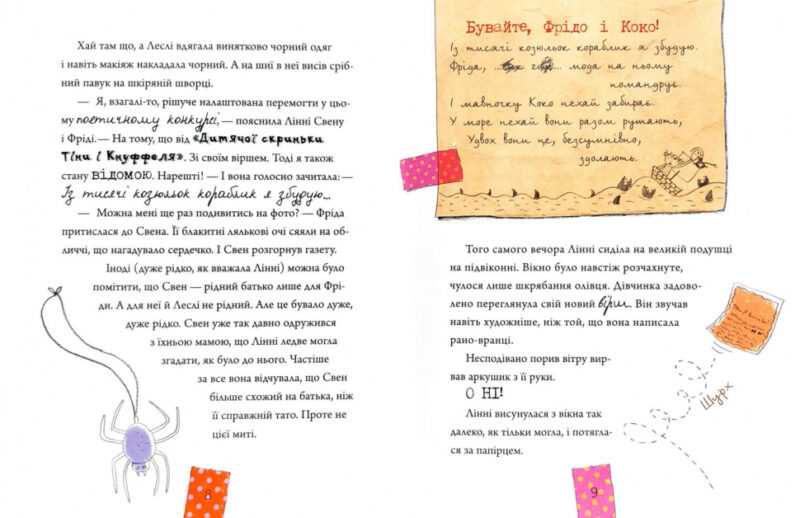 Хай там що, а Леслі вдягала винятково чорний одяг
і навіть макіяж накладала чорний. А на шиї в неї висів сріб-
ний павук на шкіряній шворці.
— Я, взагалі-то, рішуче налаштована перемогти у цьо-
му поетичному конкурсі, — пояснила Лінні Свену
і Фріді. — На тому, що від «Дитячої скриньки
Тіни і Кнуффеля». Зі своїм віршем. Тоді я також
стану ВІДОМОЮ. Нарешті! — І вона голосно зачитала: —
Із тисячі козюльок кораблик я збудую...
— Можна мені ще раз подивитись на фото? — Фріда
притислася до Свена. Її блакитні лялькові очі сяяли на об-
личчі, що нагадувало сердечко. І Свен розгорнув газету.
Іноді (дуже рідко, як вважала Лінні) можна було
помітити, що Свен — рідний батько лише для Фрі-
ди. А для неї й Леслі не рідний. Але це бувало дуже,
дуже рідко. Свен уже так давно одружився
з їхньою мамою, що Лінні ледве могла
згадати, як було до нього. Частіше
за все вона відчувала, що Свен
більше схожий на батька, ніж
її справжній тато. Проте не
цієї миті.
8
Бувайте, Фрідо і Коко!
Із тисячі козюльок кораблик я збудую.
Фріда, ... ... мода на ньому
помандрує.
І мавпочку Коко нехай забирає.
У море нехай вони разом рушають,
Удвох вони це, безсумнівно,
здолають.
Того самого вечора Лінні сиділа на великій подушці
на підвіконні. Вікно було навстіж розчахнуте,
чулося лише шкрябання олівця. Дівчинка задово-
лено переглянула свій новий вірш. Він звучав
навіть художніше, ніж той, що вона написала
рано-вранці.
Несподівано порив вітру вир-
вав аркушик з її руки.
О НІ!
Лінні висунулася з вікна так
далеко, як тільки могла, і потягла-
ся за папірцем.
Шурх
9